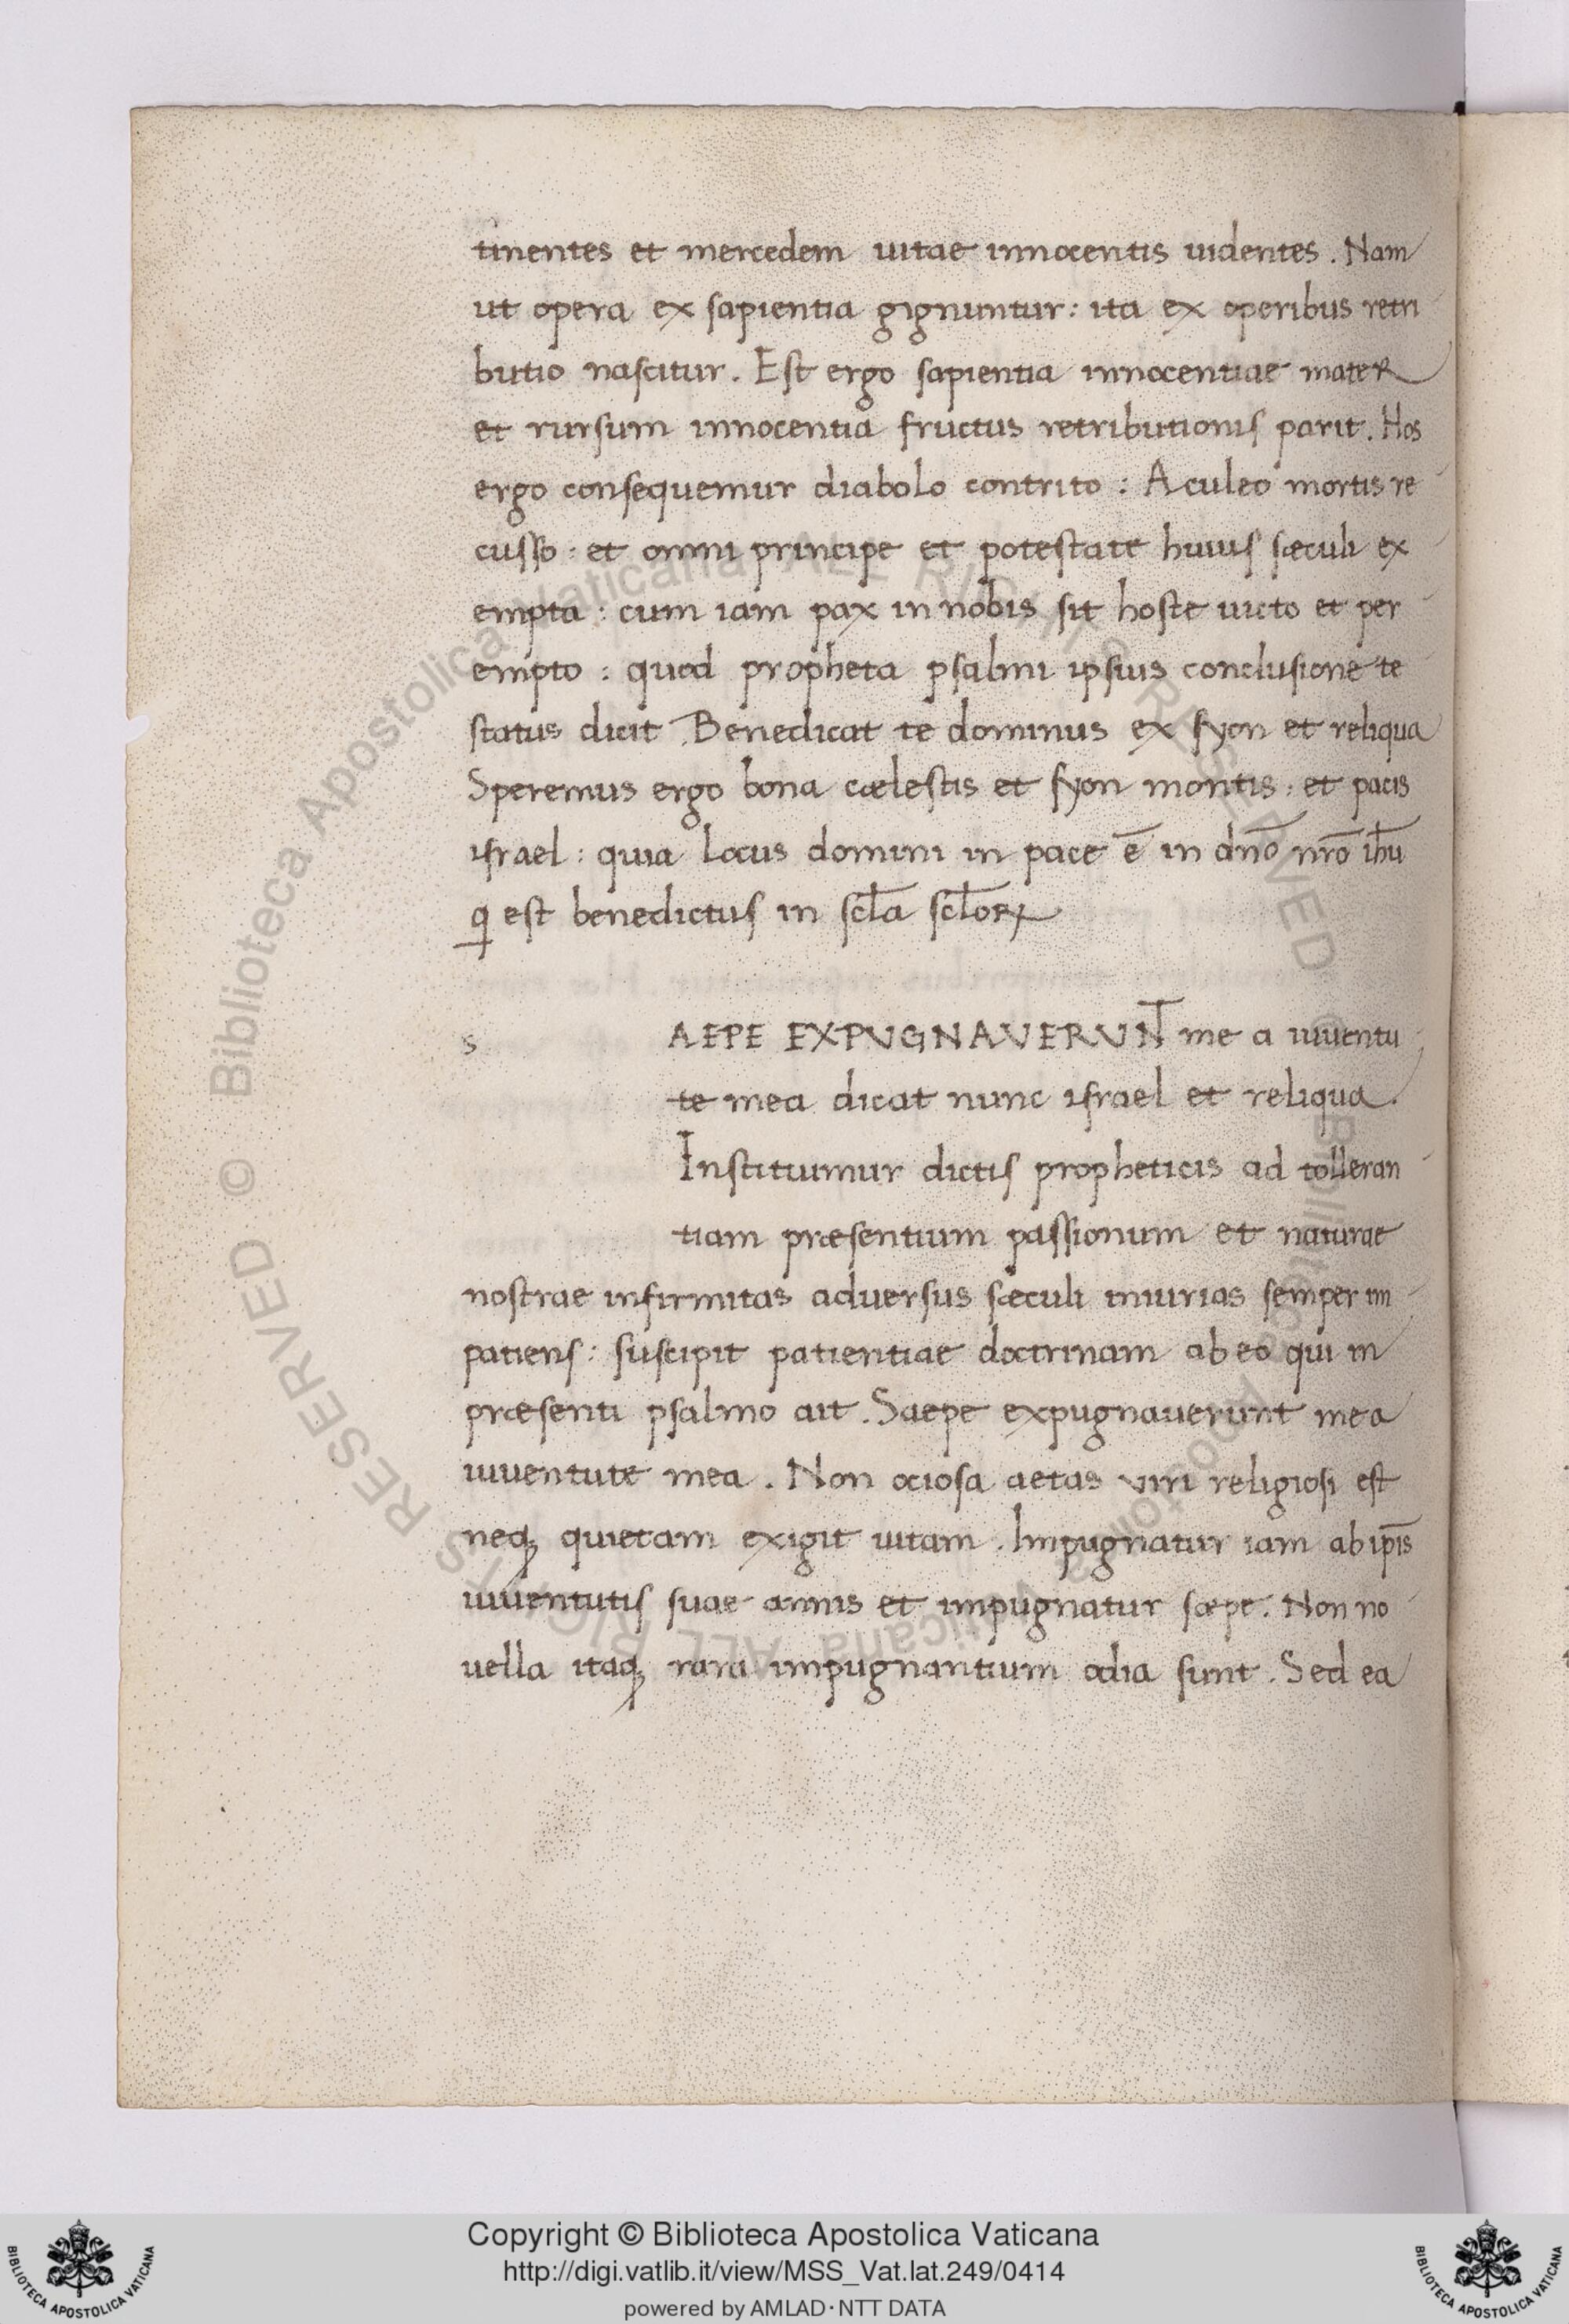 tinentes et mercedem uitae innocentis uidentes. Nam
ut opera ex sapientia gignuntur: ita ex operibus retri
butio nascitur. Est ergo sapientia innocentiae mater
et rursum innocentia fructus retributionis parit. Hos
ergo consequemur diabolo contrito: Aculeo mortis re
cusso: et omni principe et potestate huius sæculi ex
empta: cum iam pax in nobis sit hoste uicto et per
empto: quod propheta psalmi ipsius conclusione te
status dicit. Benedicat te dominus ex syon et reliqua
Speremus ergo bona cælestis et syon montis: et pacis
israel: quia locus domini in pace ē in dn̄o nr̄o ih̄u
q est benedictus in scl̄a scl̄oꝝ
s AEPE EXPVGNAVERVNT me a iuuentu
te mea dicat nunc israel et reliqua.
Instituimur dictis propheticis ad tolleran
tiam præsentium passionum et naturae
nostrae infirmitas aduersus sæculi iniurias semper im
patiens: suscipit patientiae doctrinam ab eo qui in
præsenti psalmo ait. Saepe expugnauerunt me a
iuuentute mea. Non ociosa aetas viri religiosi est
neqȝ quietam exigit uitam. Impugnatur iam ab ip̄is
iuuentutis suae annis et impugnatur sæpe. Non no
uella itaqȝ rara impugnantium odia sunt. Sed ea
© Biblioteca Apostolica Vaticana ALL RIGHTS RESERVED
© Biblioteca Apostolica Vaticana ALL RIGHTS RESERVED
Copyright © Biblioteca Apostolica Vaticana
http://digi.vatlib.it/view/MSS_Vat.lat.249/0414
powered by AMLAD·NTT DATA
BIBLIOTECA APOSTOLICA VATICANA
BIBLIOTECA APOSTOLICA VATICANA